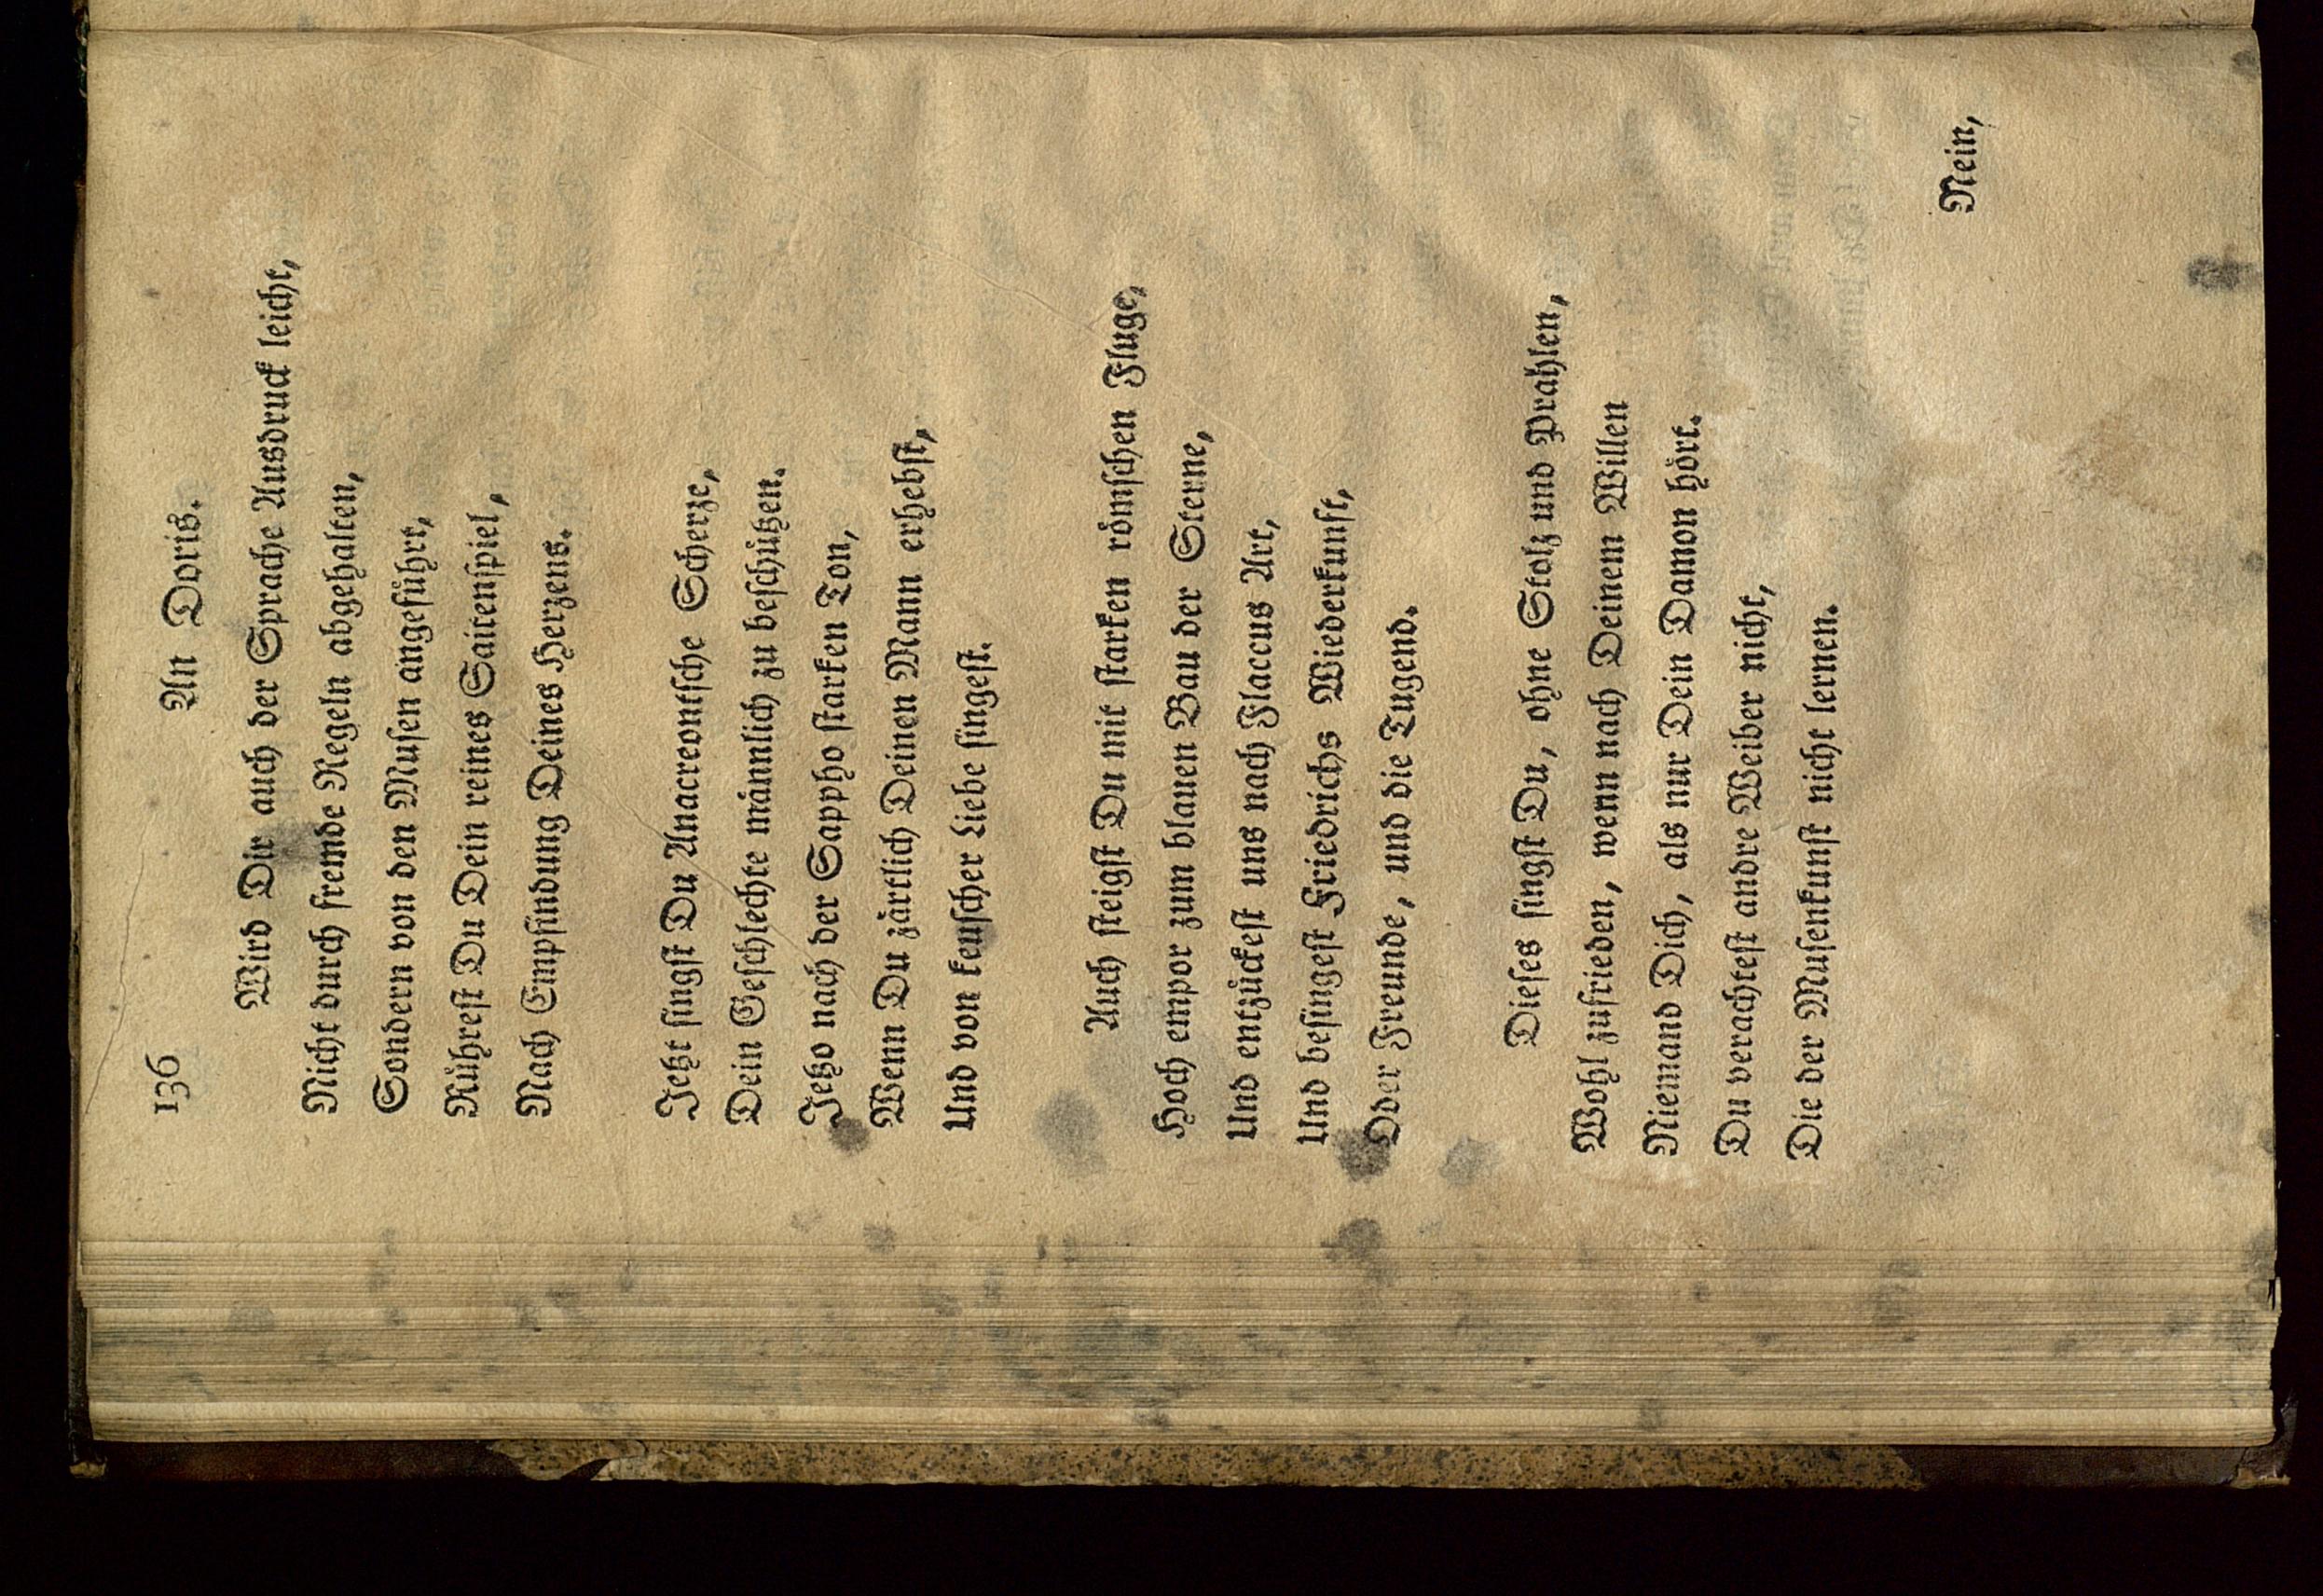 136 An Doris.
Wird Dir auch der Sprache Ausdruck leicht,
Nicht durch fremde Regeln abgehalten,
Sondern von den Musen angeführt,
Rührest Du Dein reines Saitenspiel,
Nach Empfindung Deines Herzens.
Jetzt singst Du Anacreontsche Scherze,
Dein Geschlechte männlich zu beschützen.
Jetzo nach der Sappho starken Ton,
Wenn Du zärtlich Deinen Mann erhebst,
Und von keuscher Liebe singest.
Auch steigst Du mit starken römschen Fluge,
Hoch empor zum blauen Bau der Sterne,
Und entzückest uns nach Flaccus Art,
Und besingest Friedrichs Wiederkunft,
Oder Freunde, und die Tugend.
Dieses singst Du, ohne Stolz und Prahlen,
Wohl zufrieden, wenn nach Deinem Willen
Niemand Dich, als nur Dein Damon hört.
Du verachtest andre Weiber nicht,
Die der Musenkunst nicht lernen.
Nein,